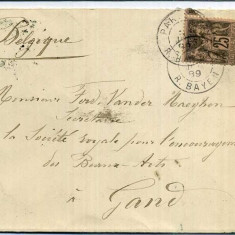 Belgique
PA
R. BAYEN
99
25
Monsieur Ferd. Vander Haeghen
Secrétaire
de la Société royale pour l'encouragement
des Beaux-Arts
à
Gand